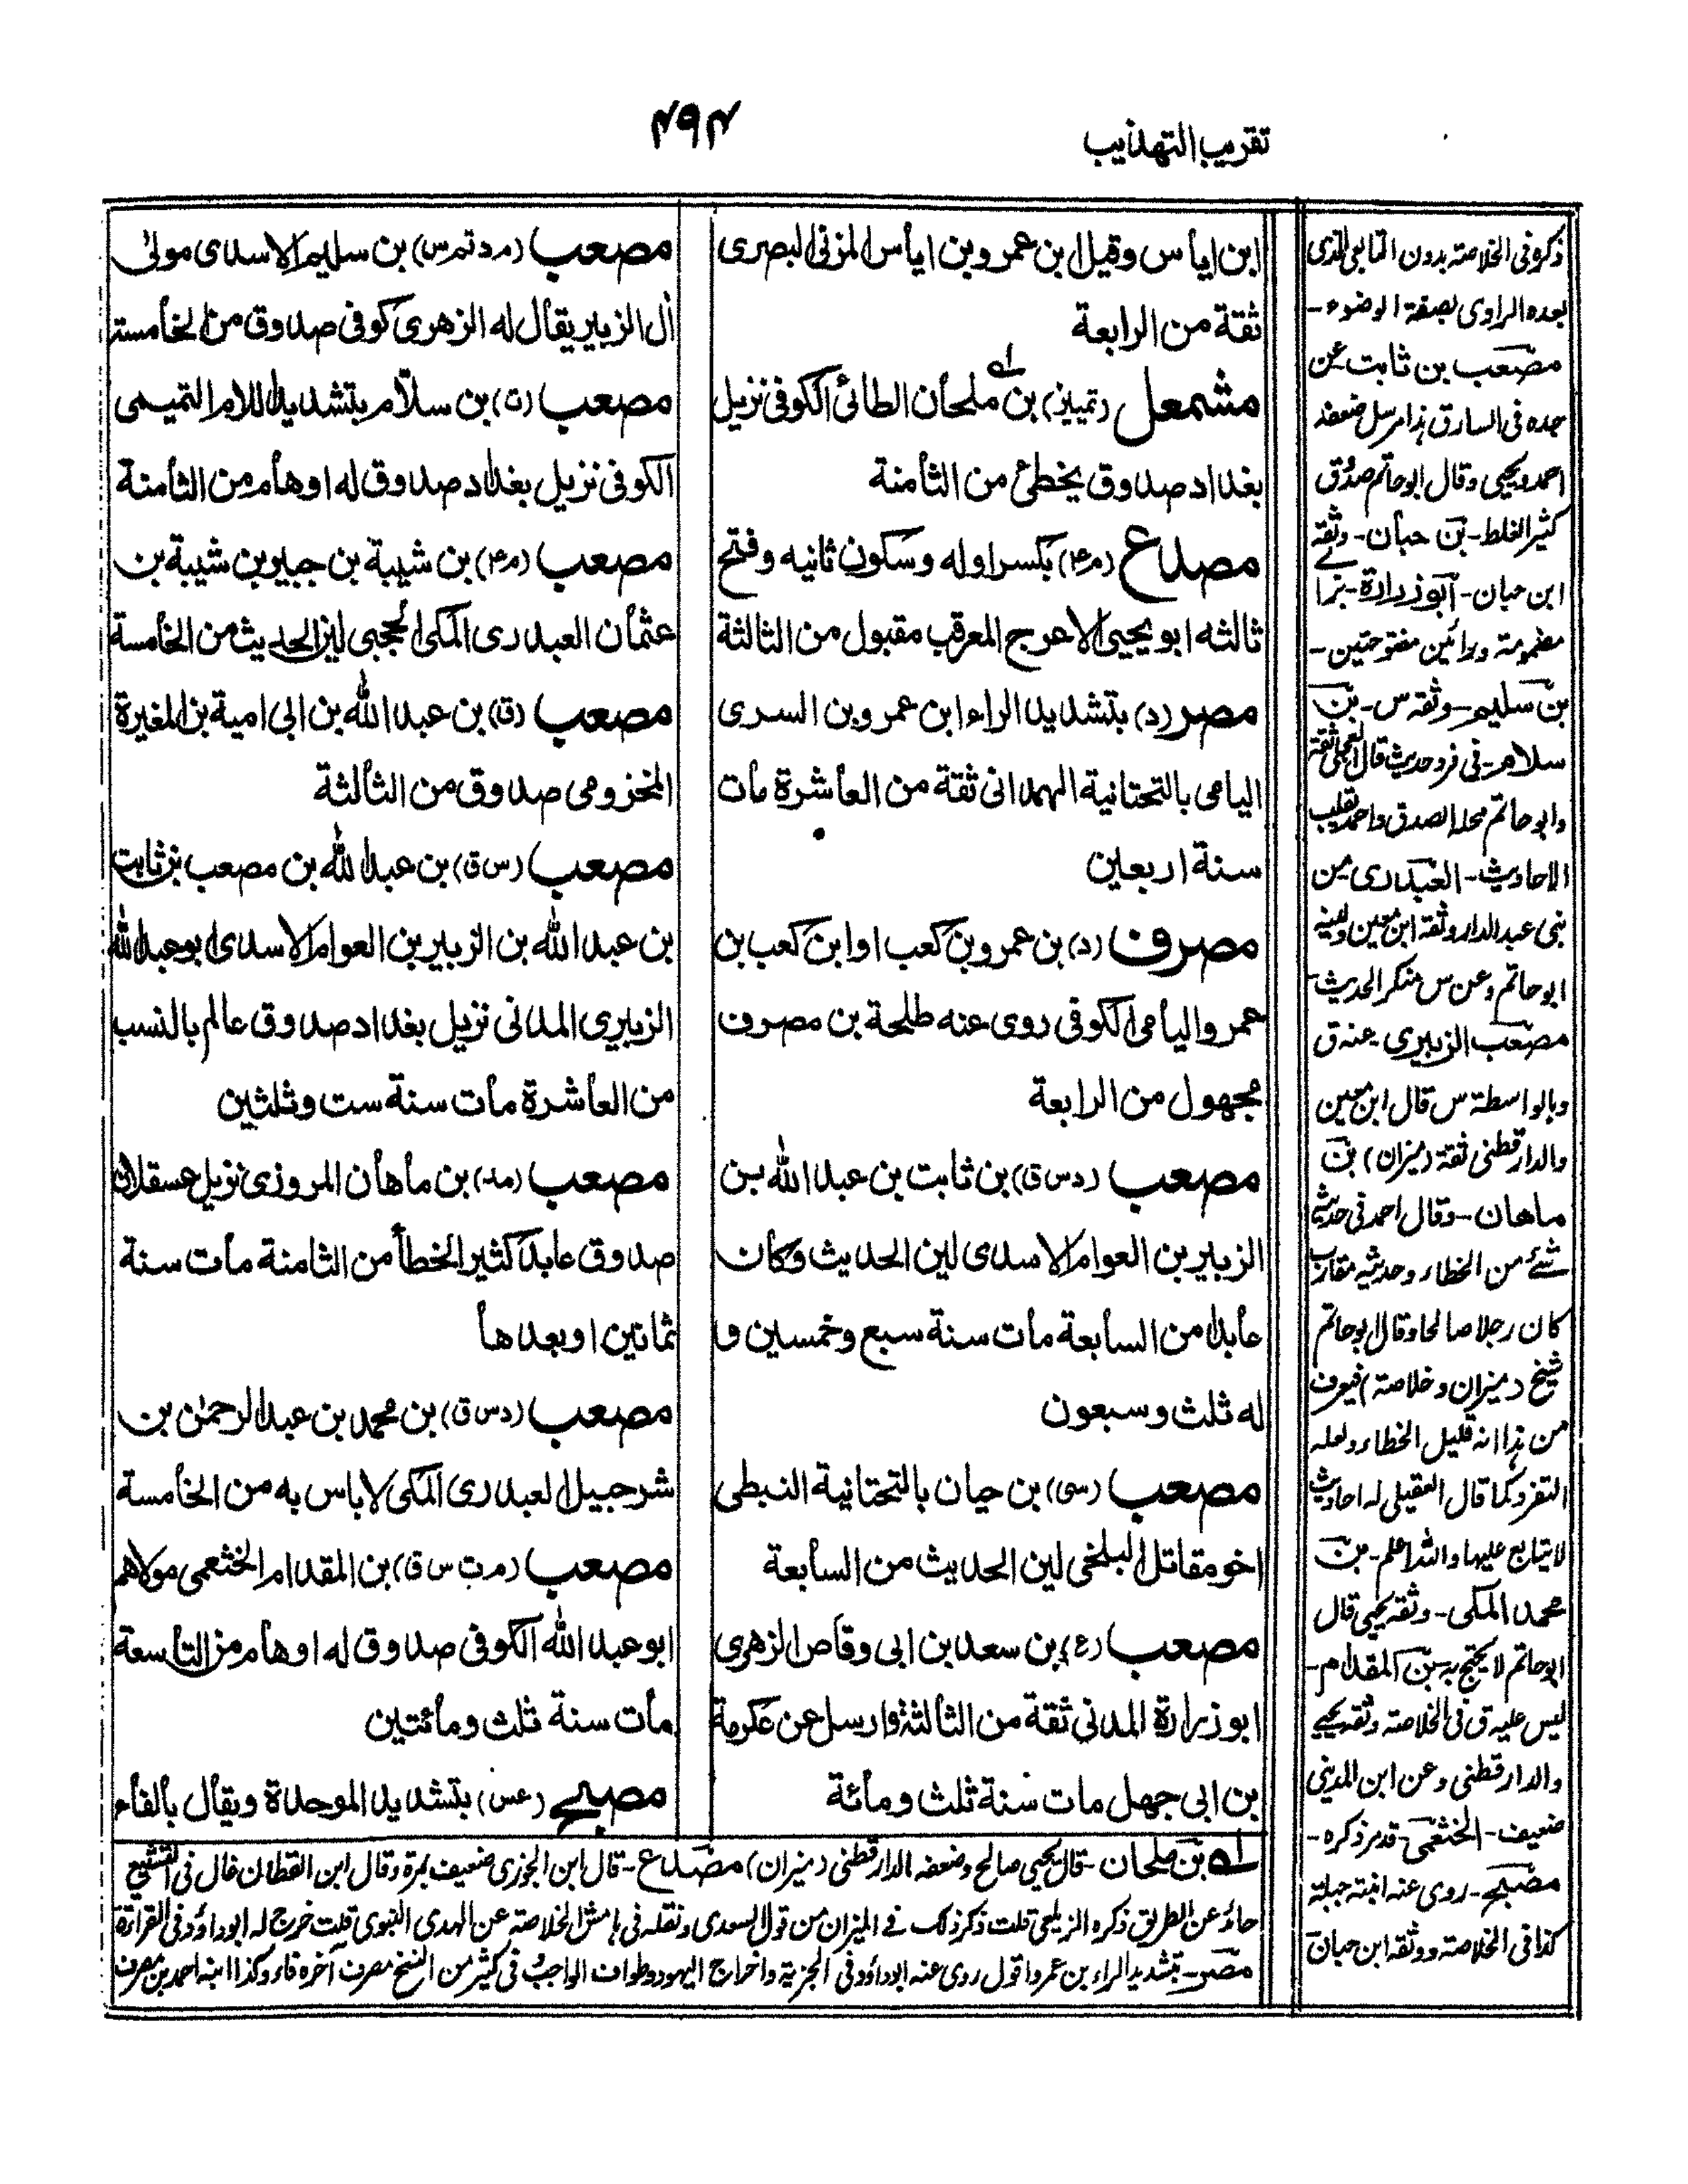 تقريب التهذيب
۴۹۴
ابن اياس وقيل ابن عمرو بن اياس المزنى البصرى
ثقة من الرابعة
مشمعل (تمييز) بن ملحان الطائى الكوفى نزيل
بغداد صدوق يخطئ من الثامنة
مصدع (م۴) بكسر اوله وسكون ثانيه وفتح
ثالثه ابو يحيى الاعرج المعرقب مقبول من الثالثة
مصرر (د) بتشديد الراء ابن عمرو بن السرى
اليامى بالتحتانية الهمدانى ثقة من العاشرة مات
سنة اربعين
مصرف (د) بن عمرو بن كعب او ابن كعب بن
عمرو اليامى الكوفى روى عنه طلحة بن مصرف
مجهول من الرابعة
مصعب (د س ق) بن ثابت بن عبد الله بن
الزبير بن العوام الاسدى لين الحديث وكان
عابدا من السابعة مات سنة سبع وخمسين و
له ثلث وسبعون
مصعب (سى) بن حيان بالتحتانية النبطى
اخو مقاتل البلخى لين الحديث من السابعة
مصعب (ع) بن سعد بن ابى وقاص الزهرى
ابو زرارة المدنى ثقة من الثالثة وارسل عن عكرمة
بن ابى جهل مات سنة ثلث ومائة
مصعب (م د تم س) بن سليم الاسدى مولى
آل الزبير يقال له الزهرى كوفى صدوق من الخامسة
مصعب (ت) بن سلام بتشديد اللام التميمى
الكوفى نزيل بغداد صدوق له اوهام من الثامنة
مصعب (م۴) بن شيبة بن جبير بن شيبة بن
عثمان العبدرى المكى الحجبى لين الحديث من الخامسة
مصعب (ق) بن عبد الله بن ابى امية بن المغيرة
المخزومى صدوق من الثالثة
مصعب (س ق) بن عبد الله بن مصعب بن ثابت
بن عبد الله بن الزبير بن العوام الاسدى ابو عبد الله
الزبيرى المدنى نزيل بغداد صدوق عالم بالنسب
من العاشرة مات سنة ست وثلثين
مصعب (مد) بن ماهان المروزى نزيل عسقلان
صدوق عابد كثير الخطأ من الثامنة مات سنة
ثمانين او بعدها
مصعب (د س ق) بن محمد بن عبد الرحمٰن بن
شرحبيل العبدرى المكى لا باس به من الخامسة
مصعب (م ت س ق) بن المقدام الخثعمى مولاهم
ابو عبد الله الكوفى صدوق له اوهام من التاسعة
مات سنة ثلث ومائتين
مصبح (عس) بتشديد الموحدة ويقال بالفاء
ذكر فى الخلاصة بدون التابعى الذى
بعده الراوى بصفة الوضوء -
مصعب بن ثابت عن
جده فى السارق هذا مرسل ضعفه
احمد ويحيى وقال ابو حاتم صدوق
كثير الغلط - بن حبان - وثقه
ابن حبان - ابو زرارة - بزا
مضمومة ورائين مفتوحتين -
بن سليم - وثقه س - بن
سلام - فى فرد حديث قال العجلى ثقة
وابو حاتم محله الصدق واحمد تقلب
الاحاديث - العبدرى من
بنى عبد الدار وثقه ابن معين ولينه
ابو حاتم وعن س منكر الحديث -
مصعب الزبيرى - عنه ق
وبالواسطة س قال ابن معين
والدارقطنى ثقة (ميزان) بن
ماهان - وقال احمد فى حديثه
شئ من الخطاء وحديثه مقارب
كان رجلا صالحا وقال ابو حاتم
شيخ (ميزان وخلاصة) فيعرف
من هذا انه قليل الخطاء ولعله
التفرد كما قال العقيلى له احاديث
لا يتابع عليها والله اعلم - بن
محمد المكى - وثقه يحيى قال
ابو حاتم لا يحتج به - بن المقدام -
ليس عليه ق فى الخلاصة وثقه يحيى
والدارقطنى وعن ابن المدينى
ضعيف - الخثعمى - قد مر ذكره -
مصبح - روى عنه ابنته جبلة
كذا فى الخلاصة ووثقه ابن حبان
لـه بن ملحان - قال يحيى صالح وضعفه الدارقطنى (ميزان) مصدع - قال ابن الجوزى ضعيف بمرة وقال ابن القطان غال فى التشيع
حائد عن الطريق ذكره الزيلعى قلت ذكر ذلك فى الميزان من قول السعدى ونقله فى هامش الخلاصة عن الهدى النبوى قلت خرج له ابو داؤد فى القراءة
مصرـ بتشديد الراء بن عمرو اقول روى عنه ابو داؤد فى الجزية واخراج اليهود وطواف الواجب فى كثير من النسخ مصرف آخره فاء وكذا ابنه احمد بن مصرف